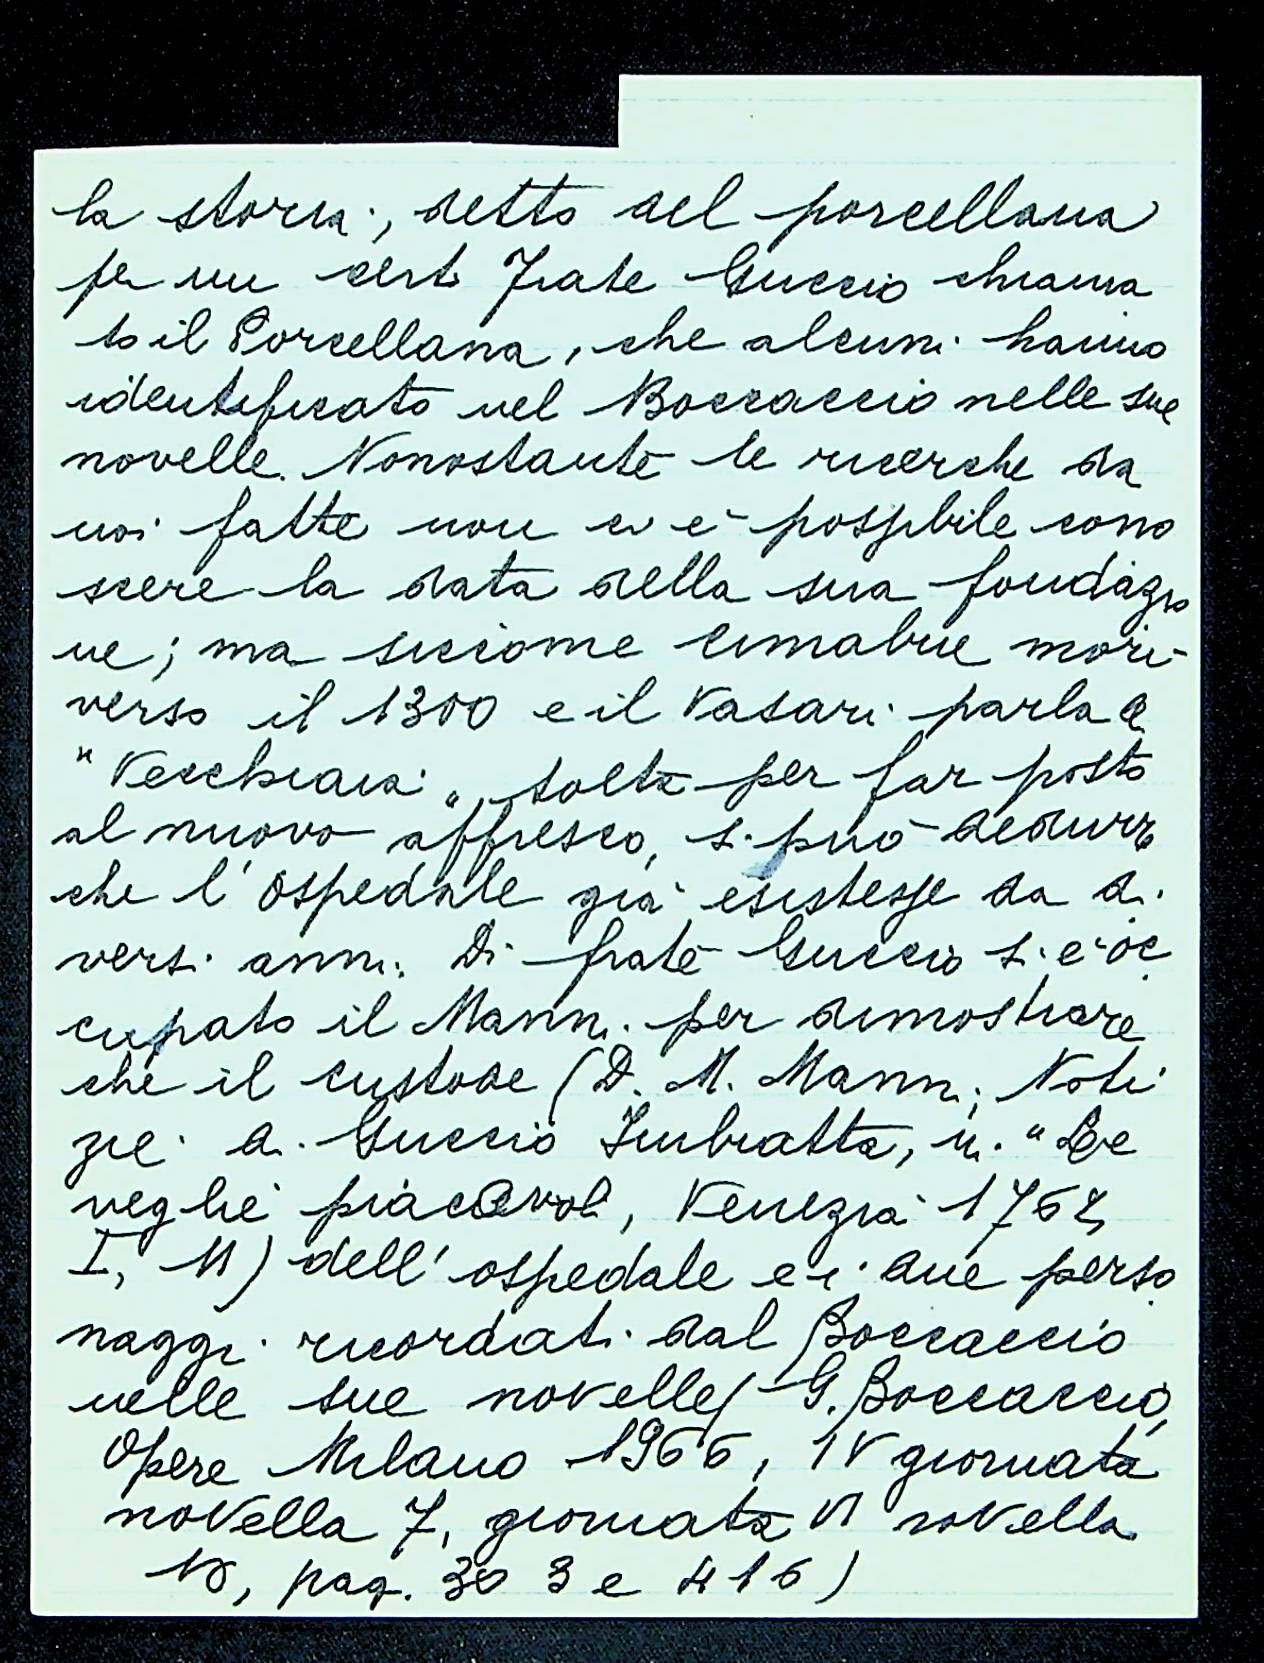 la storia, detto del porcellana
per un certo Frate Guccio chiama
to il Porcellana, che alcuni hanno
identificato nel Boccaccio nelle sue
novelle. Nonostante le ricerche da
noi fatte non ci è possibile cono
scere la data della sua fondazio
ne; ma siccome Cimabue morì
verso il 1300 e il Vasari parla di
"Vecchiaia", tolta per far posto
al nuovo affresco, si può dedurre
che l'ospedale già esistesse da di
versi anni. Di frate Guccio si è oc
cupato il Manni per dimostrare
che il custode (D. M. Manni, Noti
zie di Guccio Imbratta, in "Le
veglie piacevoli, Venezia 1762,
I, 11) dell'ospedale e i due perso
naggi ricordati dal Boccaccio
nelle sue novelle (G. Boccaccio,
Opere Milano 1966, IV giornata
novella 7, giornata VI novella
10, pag. 303 e 416)